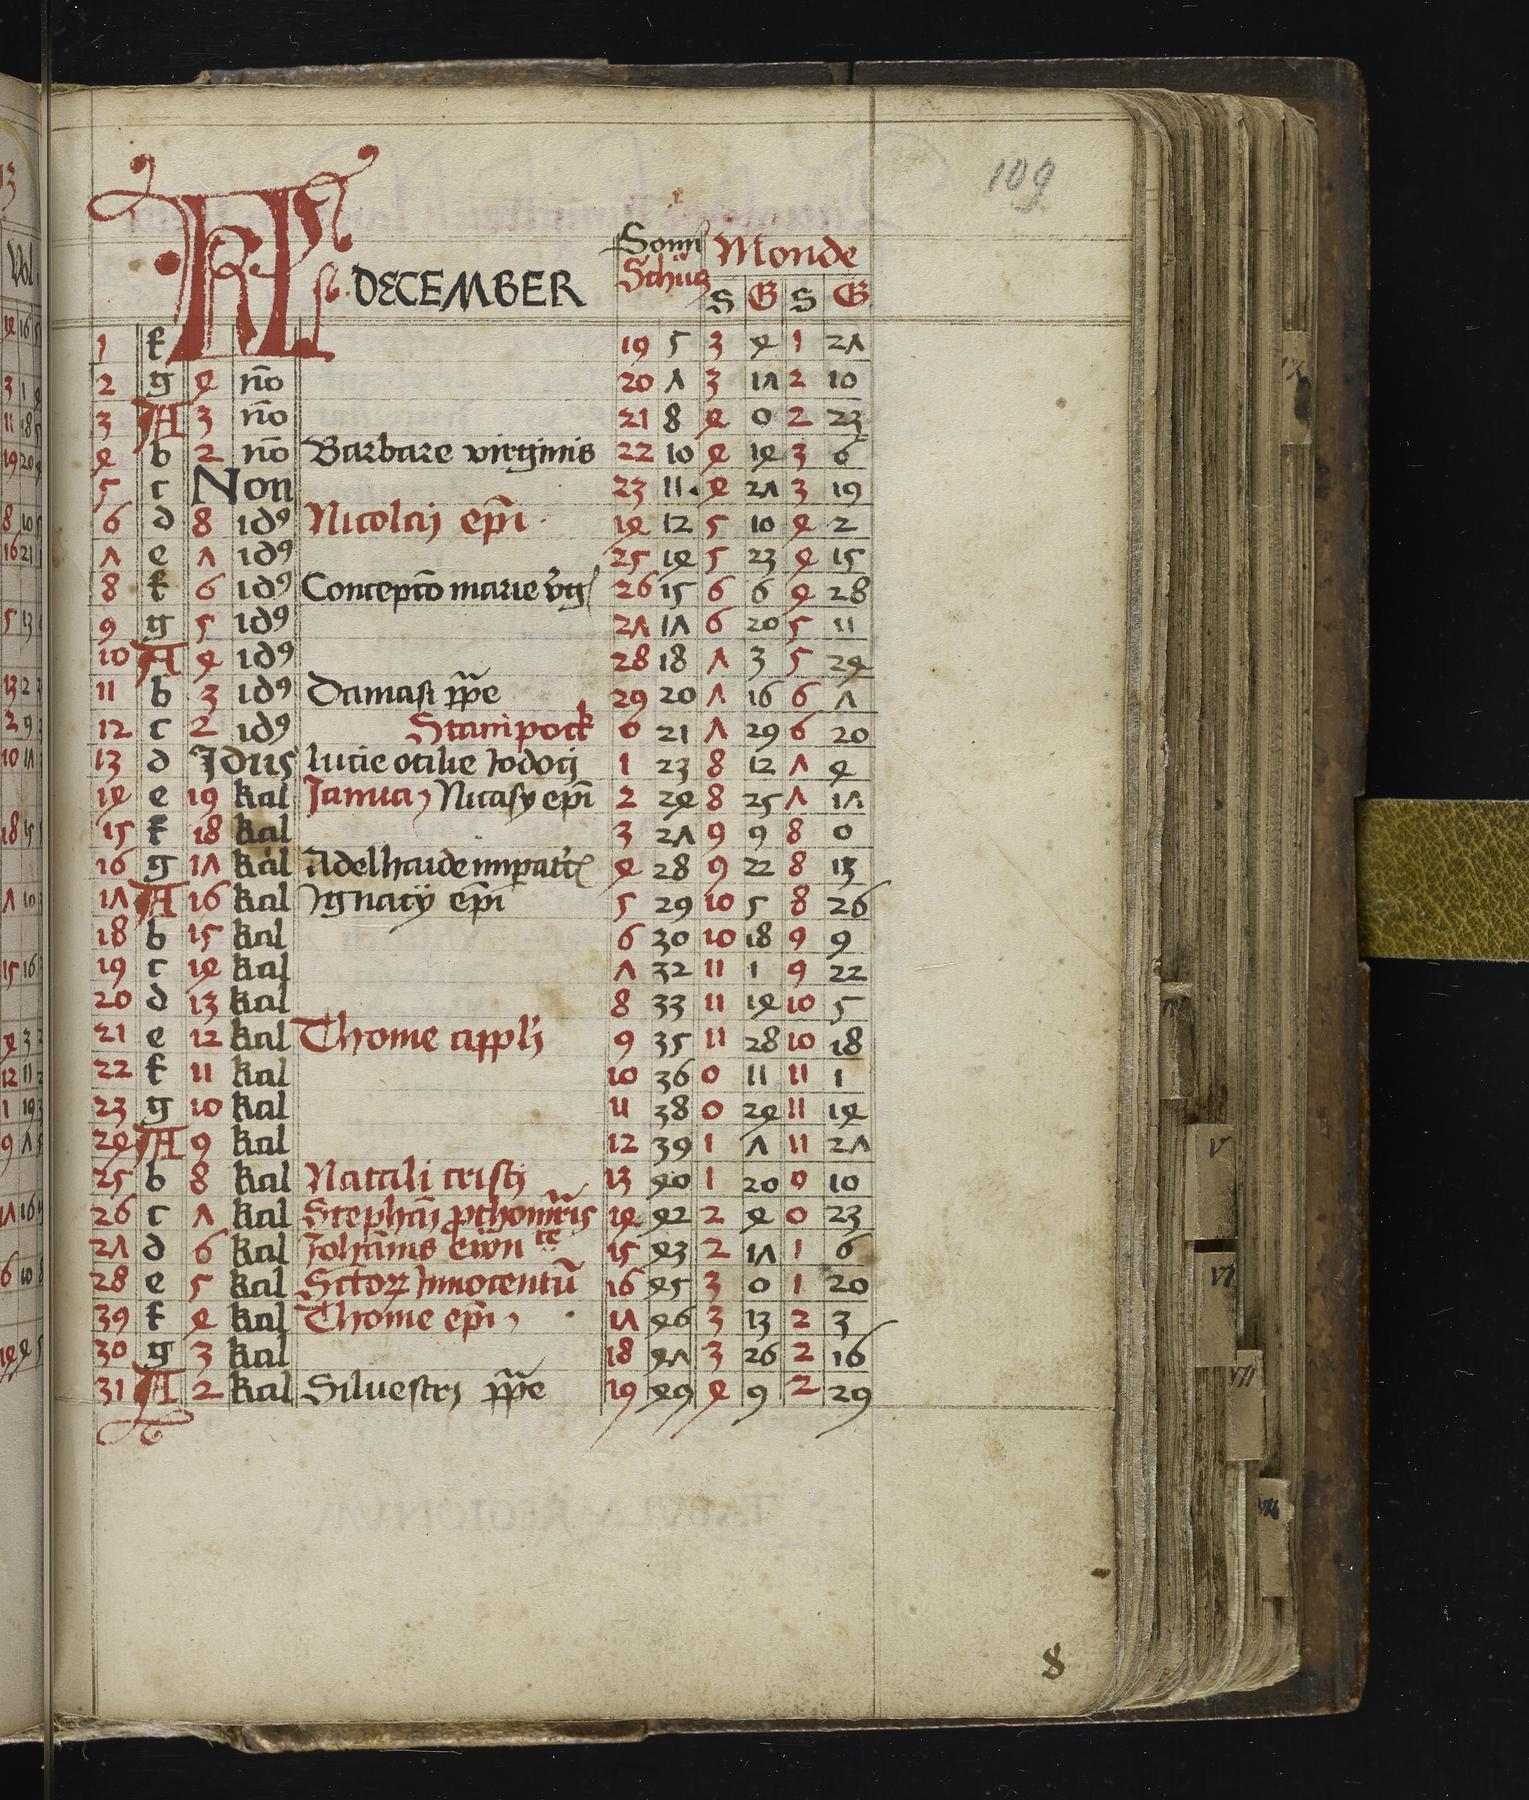 109
KL DECEMBER Sonn Monde
Schütz S G S G
1 f 19 5 3 4 1 27
2 g 4 no̅ 20 7 3 17 2 10
3 A 3 no̅ 21 8 4 0 2 23
4 b 2 no̅ Barbare virginis 22 10 4 14 3 6
5 c Non 23 11 4 27 3 19
6 d 8 idꝰ Nicolaj ep̅i 14 12 5 10 4 2
7 e 7 idꝰ 25 14 5 23 4 15
8 f 6 idꝰ Concepto̅ marie v̅g 26 15 6 6 4 28
9 g 5 idꝰ 27 17 6 20 5 11
10 A 4 idꝰ 28 18 7 3 5 24
11 b 3 idꝰ Damasi pp̅e 29 20 7 16 6 7
12 c 2 idꝰ Stainpock 0 21 7 29 6 20
13 d Jdus lucie otilie Jodocj 1 23 8 12 7 4
14 e 19 kal Januaꝛ Nicasy ep̅i 2 24 8 25 7 17
15 f 18 kal 3 27 9 9 8 0
16 g 17 kal Adelhaide 4 28 9 22 8 13
17 A 16 kal Jgnacÿ ep̅i 5 29 10 5 8 26
18 b 15 kal 6 30 10 18 9 9
19 c 14 kal 7 32 11 1 9 22
20 d 13 kal 8 33 11 14 10 5
21 e 12 kal Thome appl̅j 9 35 11 28 10 18
22 f 11 kal 10 36 0 11 11 1
23 g 10 kal 11 38 0 24 11 14
24 A 9 kal 12 39 1 7 11 27
25 b 8 kal Natali cristj 13 40 1 20 0 10
26 c 7 kal Stepha̅j ꝓthom̅ris 14 42 2 4 0 23
27 d 6 kal Joha̅nis ewn te 15 43 2 17 1 6
28 e 5 kal Sctoꝝ Jnnocentu̅ 16 45 3 0 1 20
39 f 4 kal Thome ep̅i 17 46 3 13 2 3
30 g 3 kal 18 47 3 26 2 16
31 A 2 kal Siluestrj pp̅e 19 49 4 9 2 29
8
V
VI
VII